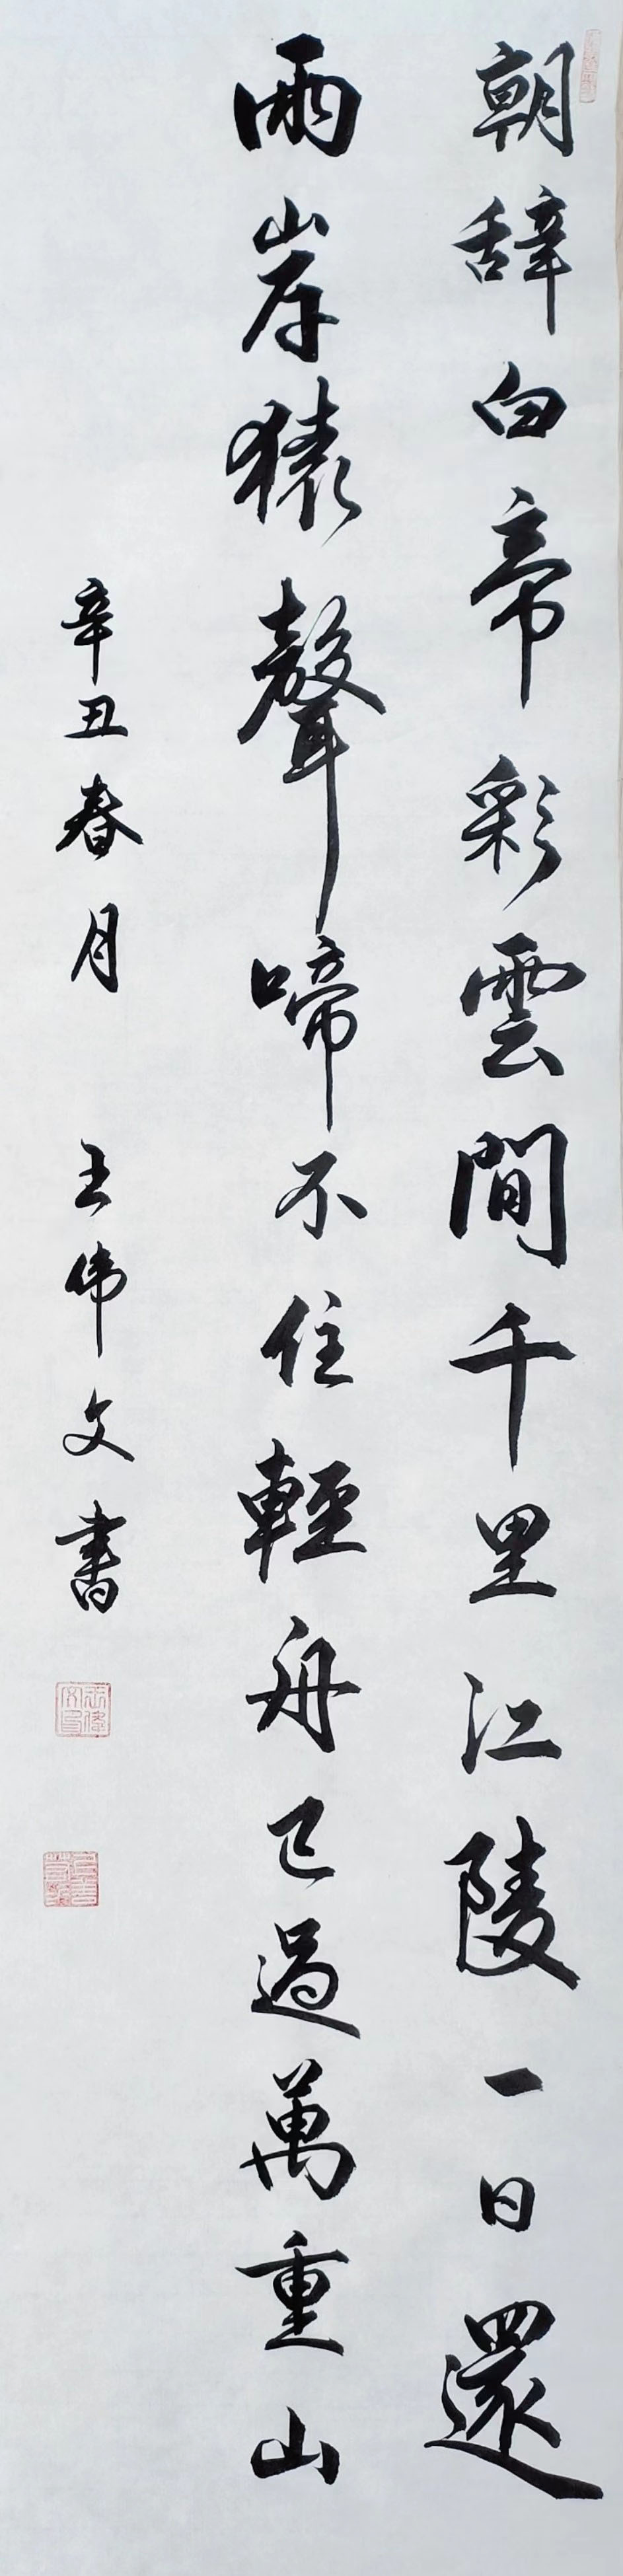 朝辞白帝彩雲間千里江陵一日還
兩岸猿聲啼不住輕舟已過萬重山
辛丑春月 王伟文書